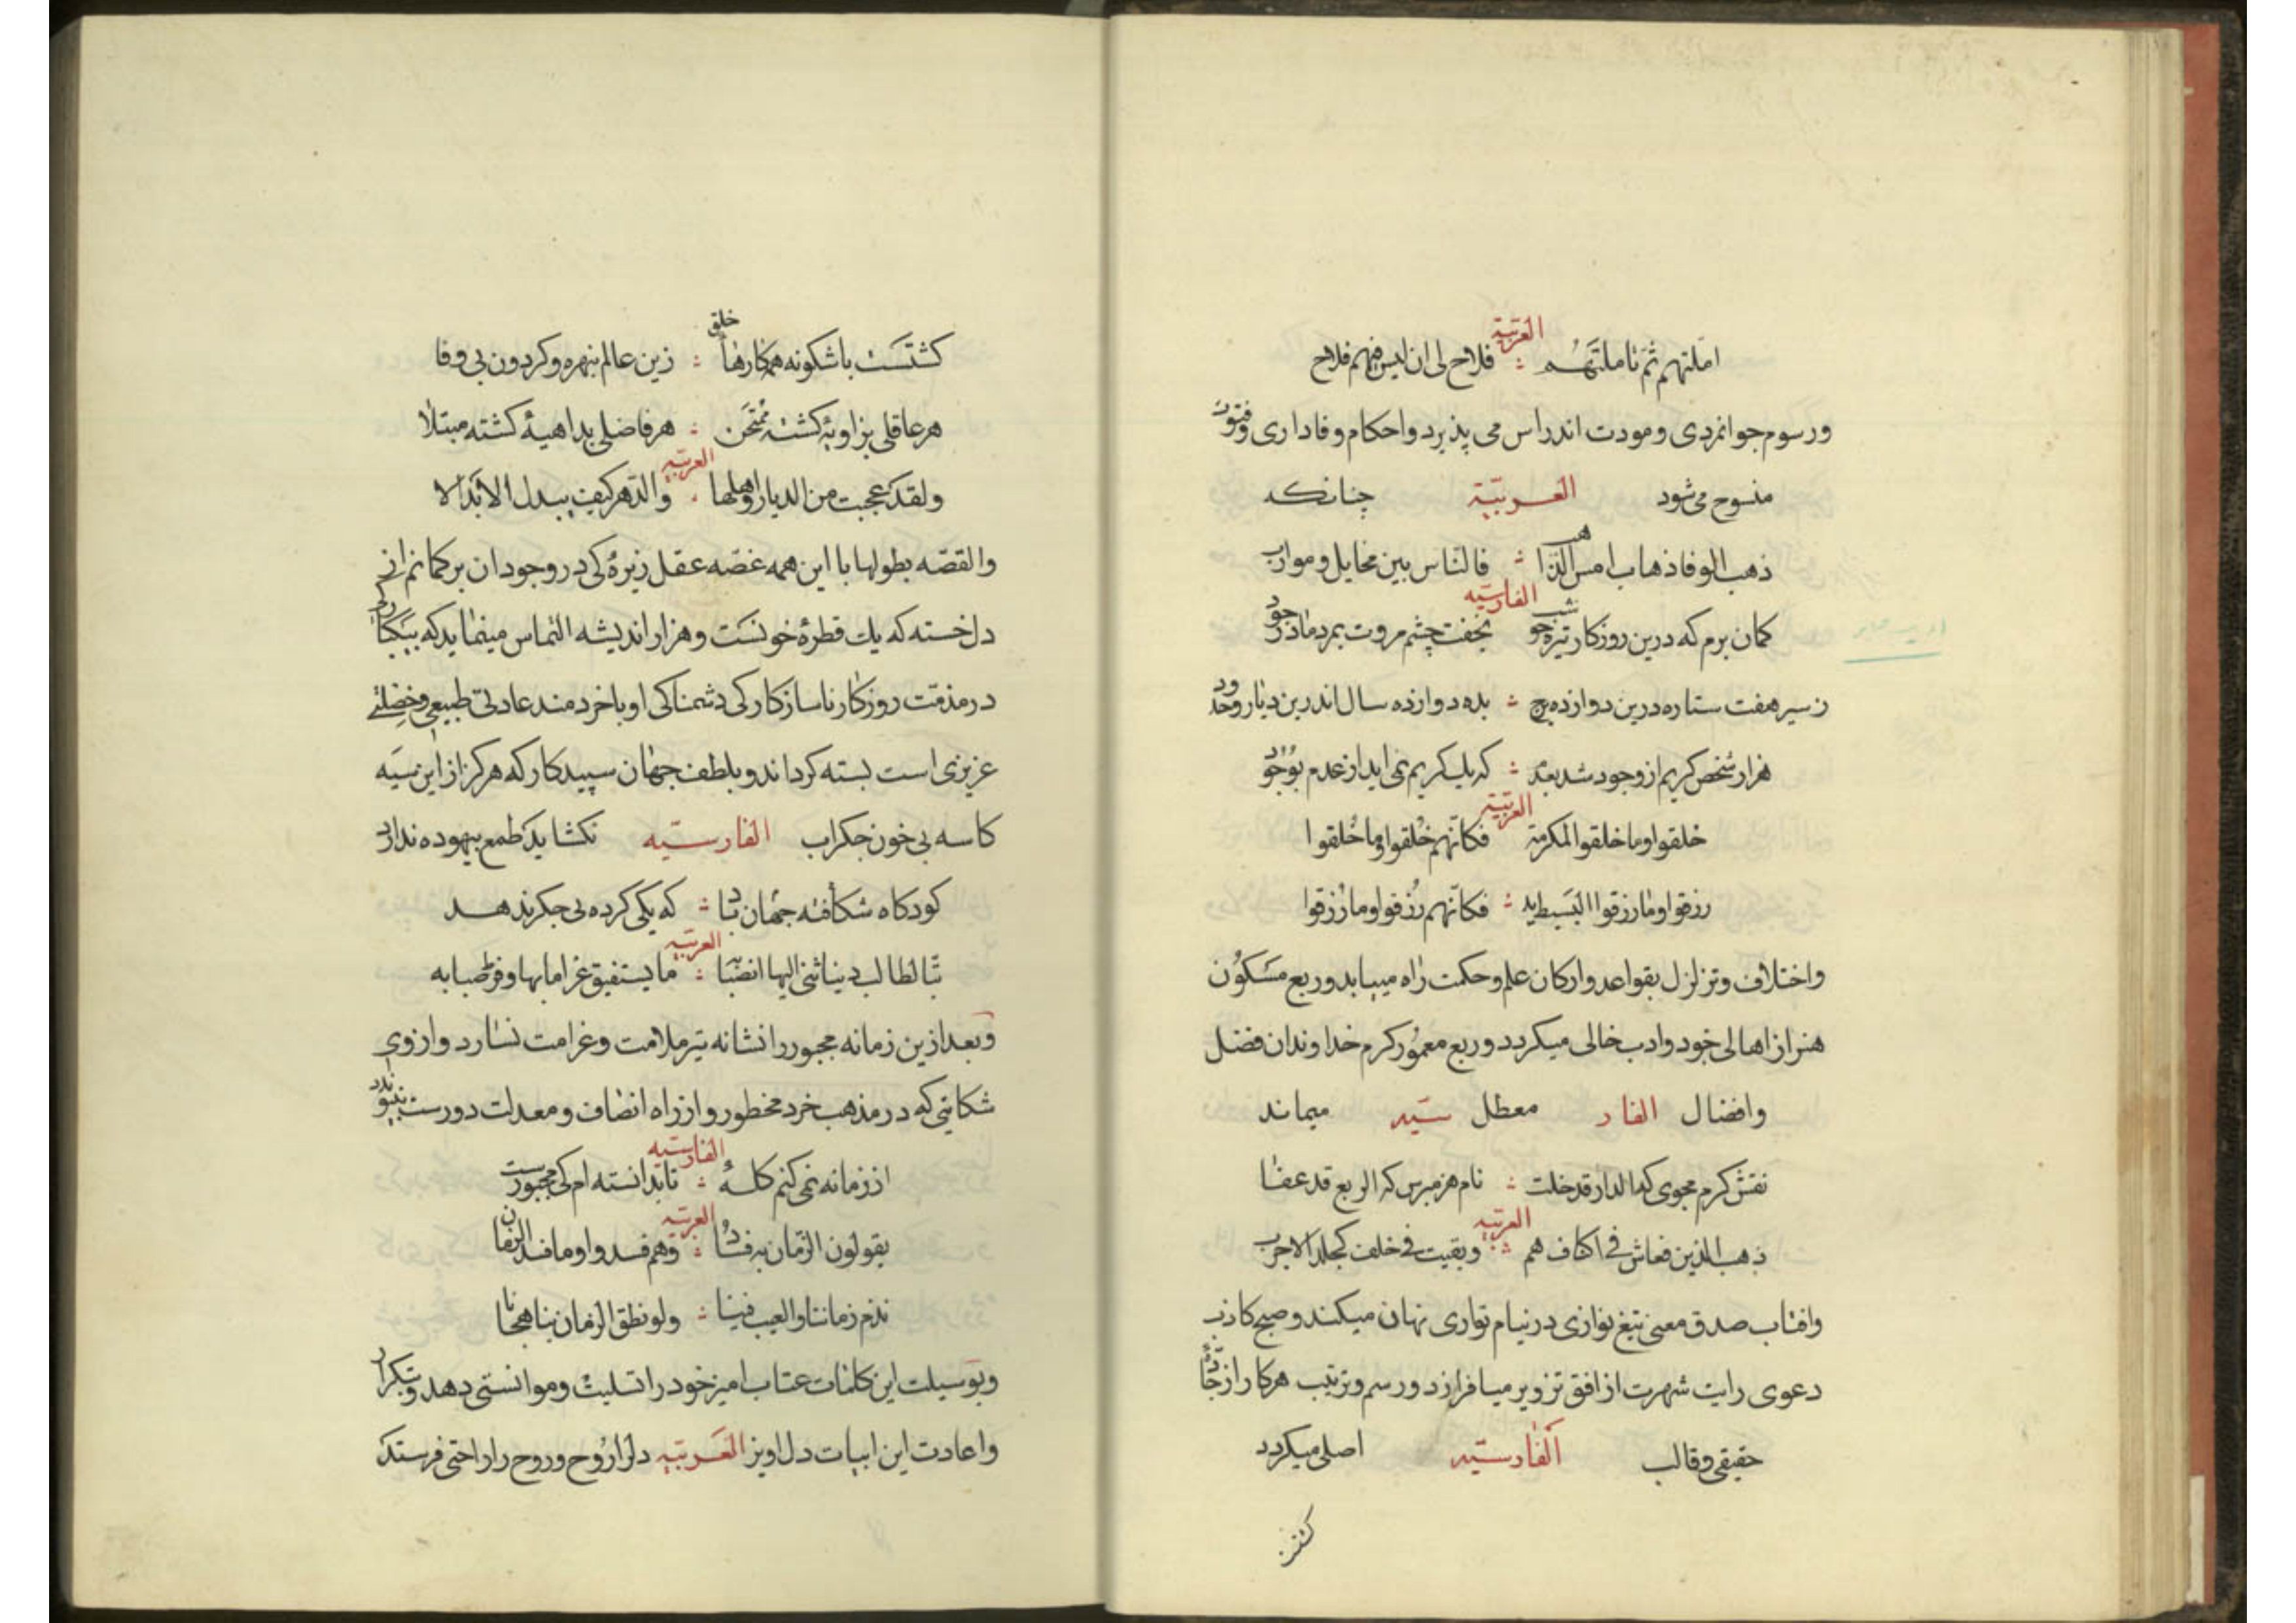 العربیّة
املتهم ثم تاملتهم ؞ فلاح لی ان لیس فیهم فلاح
ورسوم جوانمردی ومودت اندراس می پذیرد واحکام وفاداری وفتوّت
منسوح می شود العربیّة چنانکه
ذهب الوفا ذهاب امس الذاهب ؞ فالناس بین مخایل وموارب
الفارسیّه
کمان برم که درین روزکار تیره چو شب بخفت چشم مروت بمرد مادر جود
ز سیر هفت ستاره درین دوازده برج ؞ بده دوازده سال اندرین دیار وحدود
هزار شخص کریم از وجود شد بعدم ؞ که یک کریم نمی اید از عدم بوجود
العربیّة
خلقوا وما خلقوا لمکرمة فکانّهم خلقوا وما خلقوا
رزقوا وما رزقوا البسط ید ؞ فکانّهم رزقوا وما رزقوا
واختلاف وتزلزل بقواعد وارکان علم وحکمت راه مییابد وربع مسکون
هنر از اهالی خود وادب خالی میکردد وربع معمور کرم خداوندان فضل
وافضال الفار معطل سیّه میماند
نقش کرم مجوی که الدار قد خلت ؞ نام هنر مبرس که الربع قد عفا
العربیّه
ذهب الذین فعاش فی اکناف هم ؞ وبقیت فی خلف کجلد الاجرب
وافتاب صدق معنی تیغ نوازی در نیام تواری نهان میکند وصبح کاذب
دعوی رایت شهرت از افق تزویر میافرازد ورسم وترتیب هر کار از جادّۀ
حقیقی وقالب الفارسیّه اصلی میکردد
کشتست باشکونه همه کارهاء خلق ؞ زین عالم بنهره وکردون بی وفا
هر عاقلی بزاویۀ کشته ممتحن ؞ هر فاضلی بداهیۀ کشته مبتلا
العربیّه
ولقد عجبت من الدیار واهلها ؞ والدهر کیف یبدل الابدالا
والقصّه بطولها با این همه غصّه عقل زیره کی در وجود ان بر کمانم از
دل خسته که یک قطرۀ خونست وهزار اندیشه التماس مینماید که
در مذمت روزکار ناسازکار کی دشمناکی او با خردمند عادتی طبیعی وخصلتی
عزیزی است بسته کرداند وبلطف جهان سپیدکار که هرکز از این سیه
کاسه بی خون جکر اب الفارسیّه نکشاید طمع بیهوده ندارد
کو دکاه شکافته جهان تباد ؞ که یکی کرده بی جکر ندهد
العربیّه
تبّا لطالب دنیا ثنی الیها انصبابه ؞ ما یستفیق غراما بها وفرط صبابه
وبعد ازین زمانه مجبور را نشانه تیر ملامت وغرامت نسازد واز وی
شکایتی که در مذهب خرد محظور واز راه انصاف ومعدلت دورست
الفارسیّه
از زمانه نمی کنم کلۀ ؞ تا بدانسته ام کی مجبورست
العربیّه
یقولون الزمان به فساد ؞ وهم فسدوا وما فسد الزمان
نذم زماننا والعیب فینا ؞ ولو نطق الزمان بنا هجانا
وبوسیلت این کلمات عتاب امیز خود را تسلیت وموانستی دهد وبتکرار
واعادت این ابیات دل اویز العربیّه دل را روح وروح را راحتی فرستد